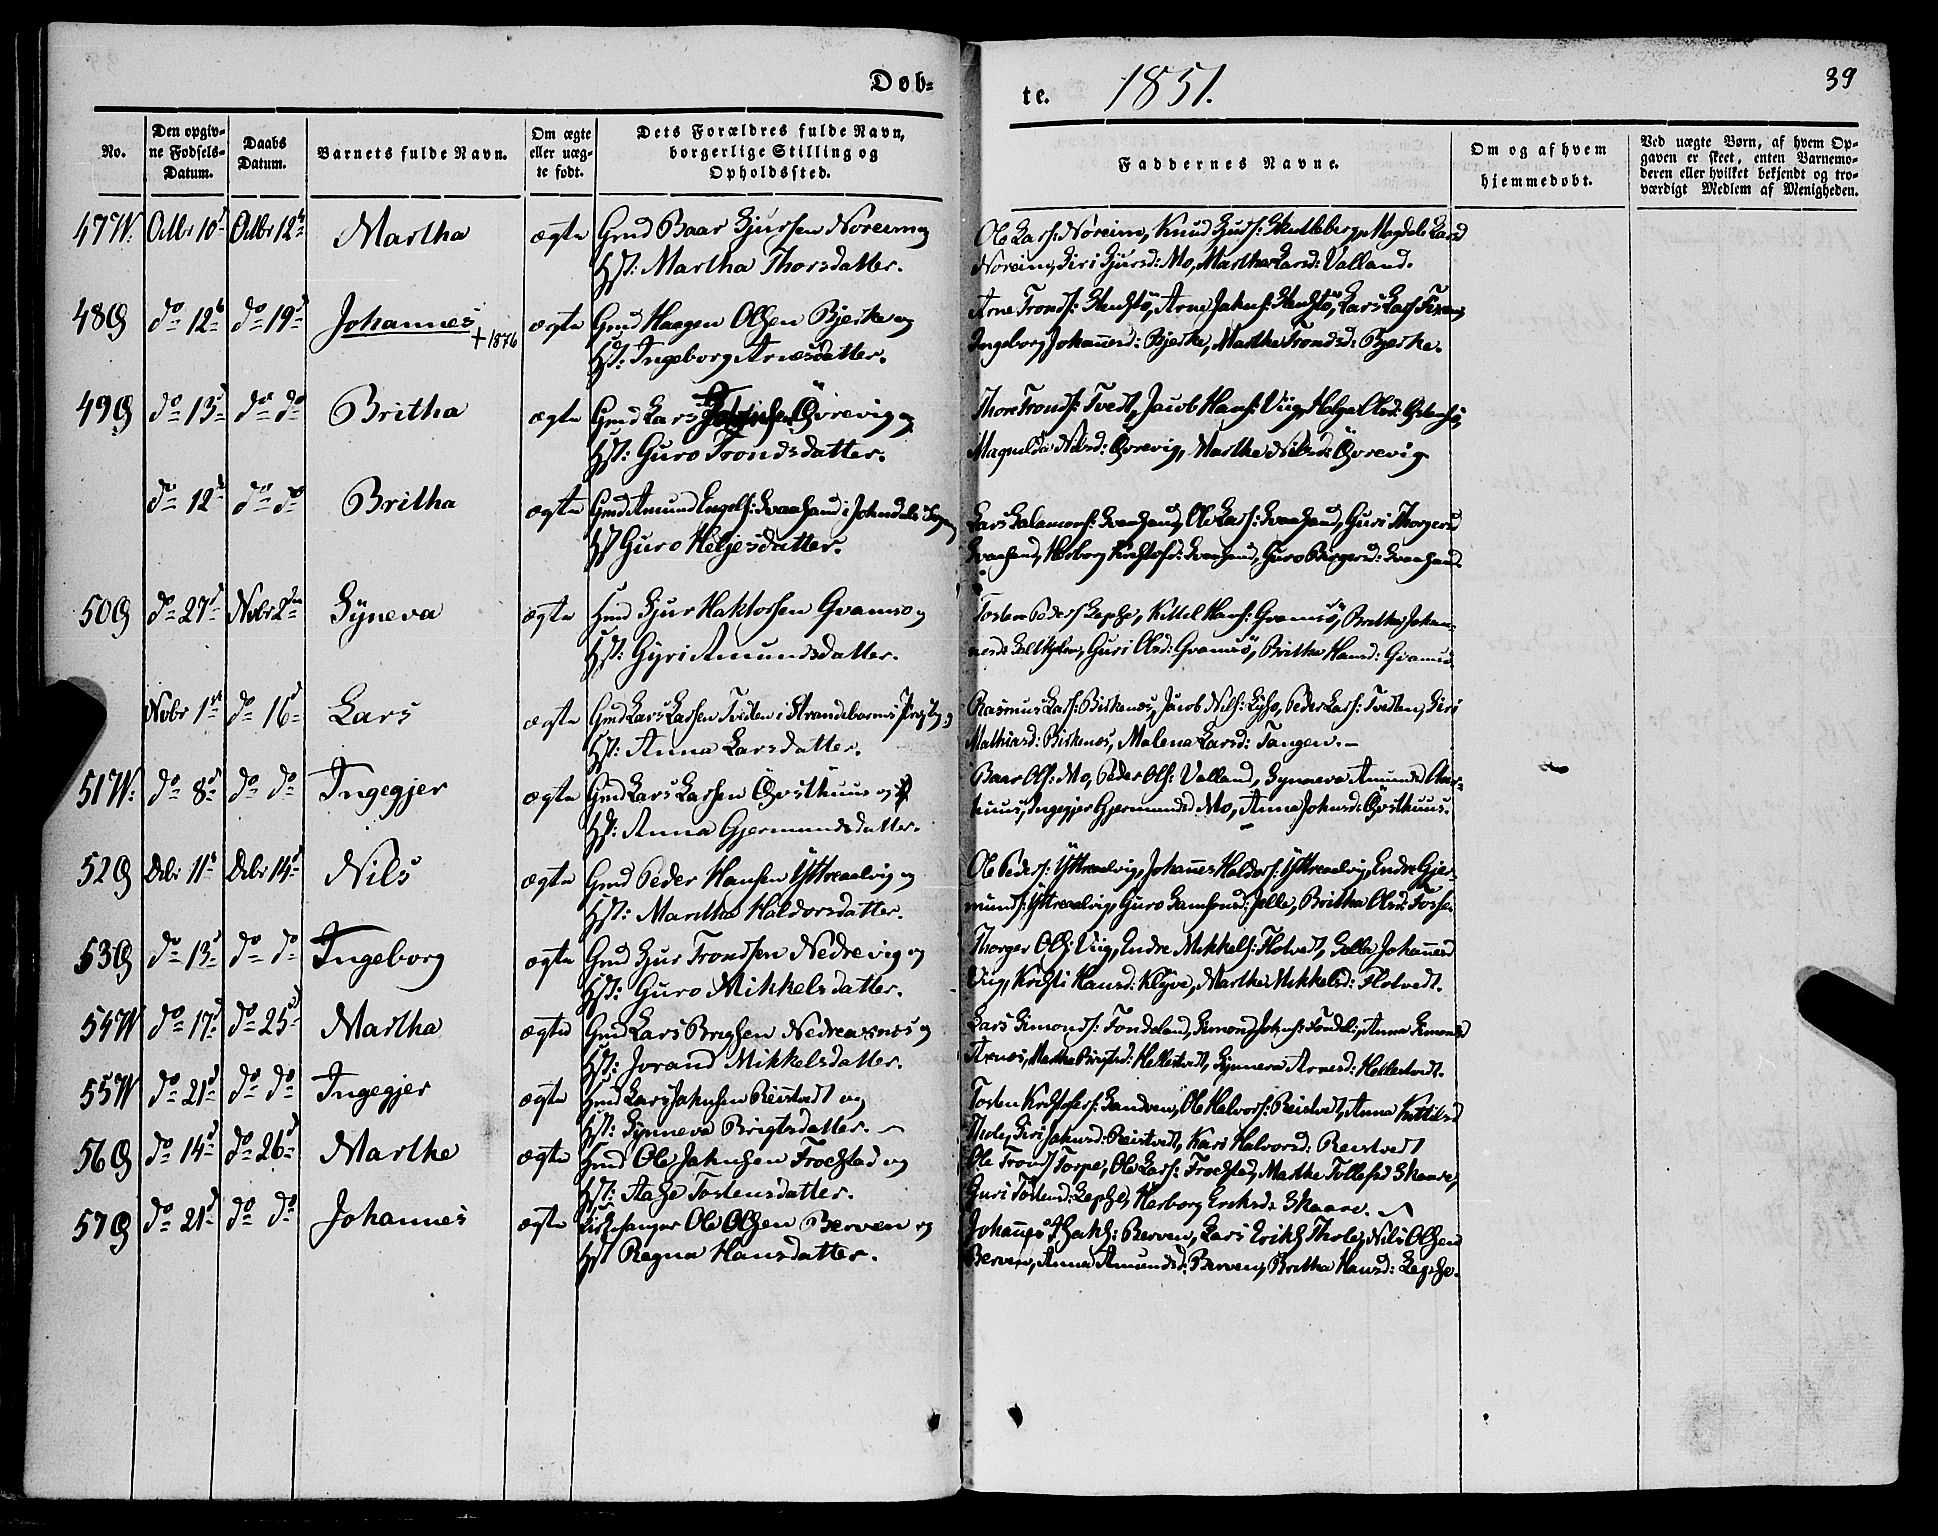 Døb-
te. 1851. 39
No.
Den opgiv-
ne Fødsels-
Datum.
Daabs
Datum.
Barnets fulde Navn.
Om ægte
eller uæg-
te født.
Dets Forældres fulde Navn,
borgerlige Stilling og
Opholdssted.
Faddernes Navne.
Om og af hvem
hjemmedøbt.
Ved uægte Børn, af hvem Op-
gaven er skeet, enten Barnemo-
deren eller hvilket bekjendt og tro-
værdigt Medlem af Menigheden.
47 W. Octbr 10d Octbr 12te Martha ægte Gmd Baar Sjursen Noreim og
Hst: Martha Thorsdatter.
Ole Lars: Noreim, Knud Sjurs: Magdele Larsd
Noreim, Siri Sjursd: Mo, Martha Larsd: Valland.
48 G do 12te do 19d Johannes ægte Gmd Haagen Olsen Bjerke og
+ 1876
Hst: Ingeborg Arnesdatter.
Arne Tronds: Arne Lars Lars
Ingeborg Johannesd: Bjerke, Martha Trondsd: Bjerke.
49 G do 13d do do Britha ægte Gmd Lars Øvrevig og
Hst: Guro Trondsdatter.
Thore Tronds: Tvedt, Jacob Hans: Viig, Helga Olsd:
Magnilda Nilsd: Øvrevig, Martha Nilsd: Øvrevig
do 12te do do Britha ægte Gmd Amund i
Hst Guro Heljesdatter.
Lars Salamons: Ole Lars: Guri Thorgersd
Herborg Guro Birgersd:
50 G do 27d Novbr 2den Syneva ægte Hmd Sjur Haktorsen Gvamsø og
Hst: Gyri Amundsdatter.
Tosten Peders Lepsøe, Kittel Hans: Gvamsø, Britha Johan-
nesd: Guri Olsd: Gvamsø, Britha Hansd: Gvamsø
Novbr 1ste do 16d Lars ægte Gmd Lars Larsen Tveten i Strandebarms Præstg: og
Hst: Anna Larsdatter.
Rasmus Lars: Birkenes, Jacob Nils: Peder Lars: Tveten, Siri
Mathiasd: Birkenes, Malena Larsd: Tangen.
51 W. do 8d do do Ingegjer ægte Gmd Lars Larsen Østhuus og
Hst: Anna Gjermundsdatter.
Baar Ols: Mo, Peder Ols: Valland, Synneva Amundsd
huus, Ingegjer Gjermundsd Mo, Anna Johnsd: Østhuus.
52 G Debr 11te Debr 14d Nils ægte Gmd Peder Hansen Yttreaalvig og
Hst: Martha Haldorsdatter.
Ole Peders: Yttreaalvig, Johannes Haldors: Yttreaalvig, Endre Gjer-
munds: Yttreaalvig, Guro Samsonsd: Jelle, Britha Olsd: Fosse
53 G do 13d do do Ingeborg ægte Gmd Sjur Trondsen Nedrevig og
Hst: Guro Mikkelsdatter.
Thorger Ols: Viig, Endre Mikkels: Flotvedt, Johannesd
Viig, Kirsti Hansd: Klyve, Martha Mikkelsd: Flotvedt.
54 W do 17d do 25d Martha ægte Gmd Lars Nedreaxnes og
Hst: Jorand Mikkelsdatter.
Lars Simonds: Fondeland, Simon Johns: Anna Simonsd
Axnes, Martha Hellestvedt, Synneva Arnesd: Hellestvedt.
55 W do 21d do do Ingegjer ægte Hmd Lars Jahnsen Reistvedt og
Hst: Synneva Brigtsdatter.
Tosten Kirstofers: Sandven, Ole Halvors: Reistvedt, Anna Kittilsd
Siri Jahnsd: Reistvedt, Kari Halvorsd: Reistvedt
56 G do 14d do 26d Martha ægte Hmd Ole Jahnsen og
Hst: Aase Tostensdatter.
Ole Trond Torpe, Ole Lars: Martha Tollefsd Skaare,
Guri Tostensd: Lepsøe, Herborg Eriksd: Skaare.
57 G do 21d do do Johannes ægte Kirkesanger Ole Olsen Berven og
Hst Ragna Hansdatter.
Johannes Berven, Lars Nils Olsen
Berven, Anna Amundsd: Berven, Britha Hansd: Lepsøe.